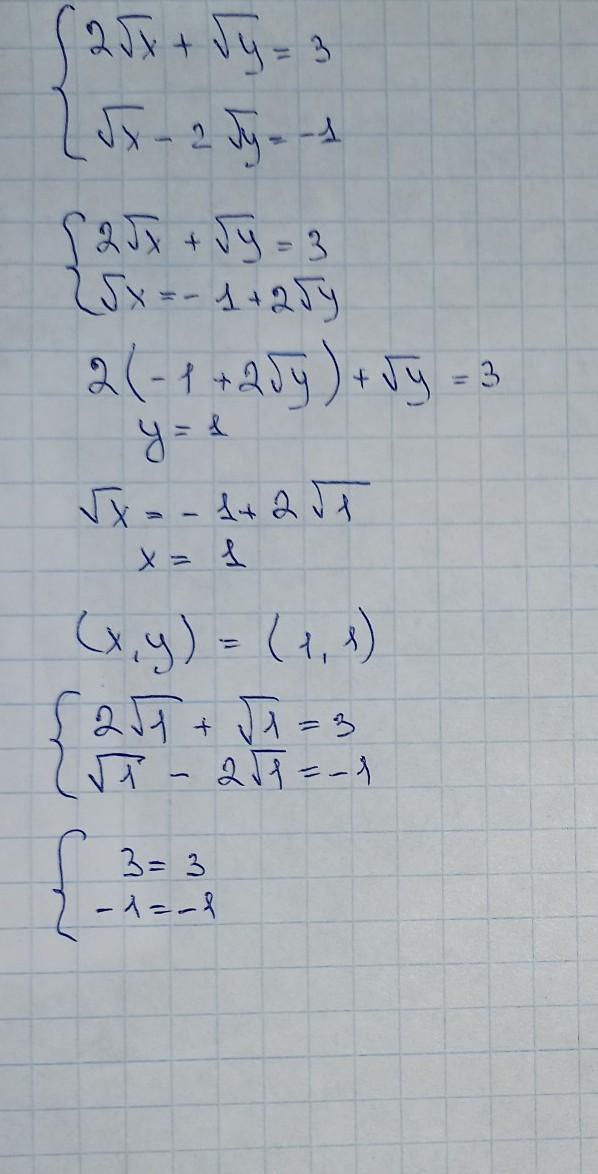 { 2√x + √y = 3
√x - 2√y = -1
{ 2√x + √y = 3
√x = - 1 + 2√y
2(-1 + 2√y) + √y = 3
y = 1
√x = - 1 + 2√1
x = 1
(x, y) = (1, 1)
{ 2√1 + √1 = 3
√1 - 2√1 = -1
{ 3 = 3
-1 = -1